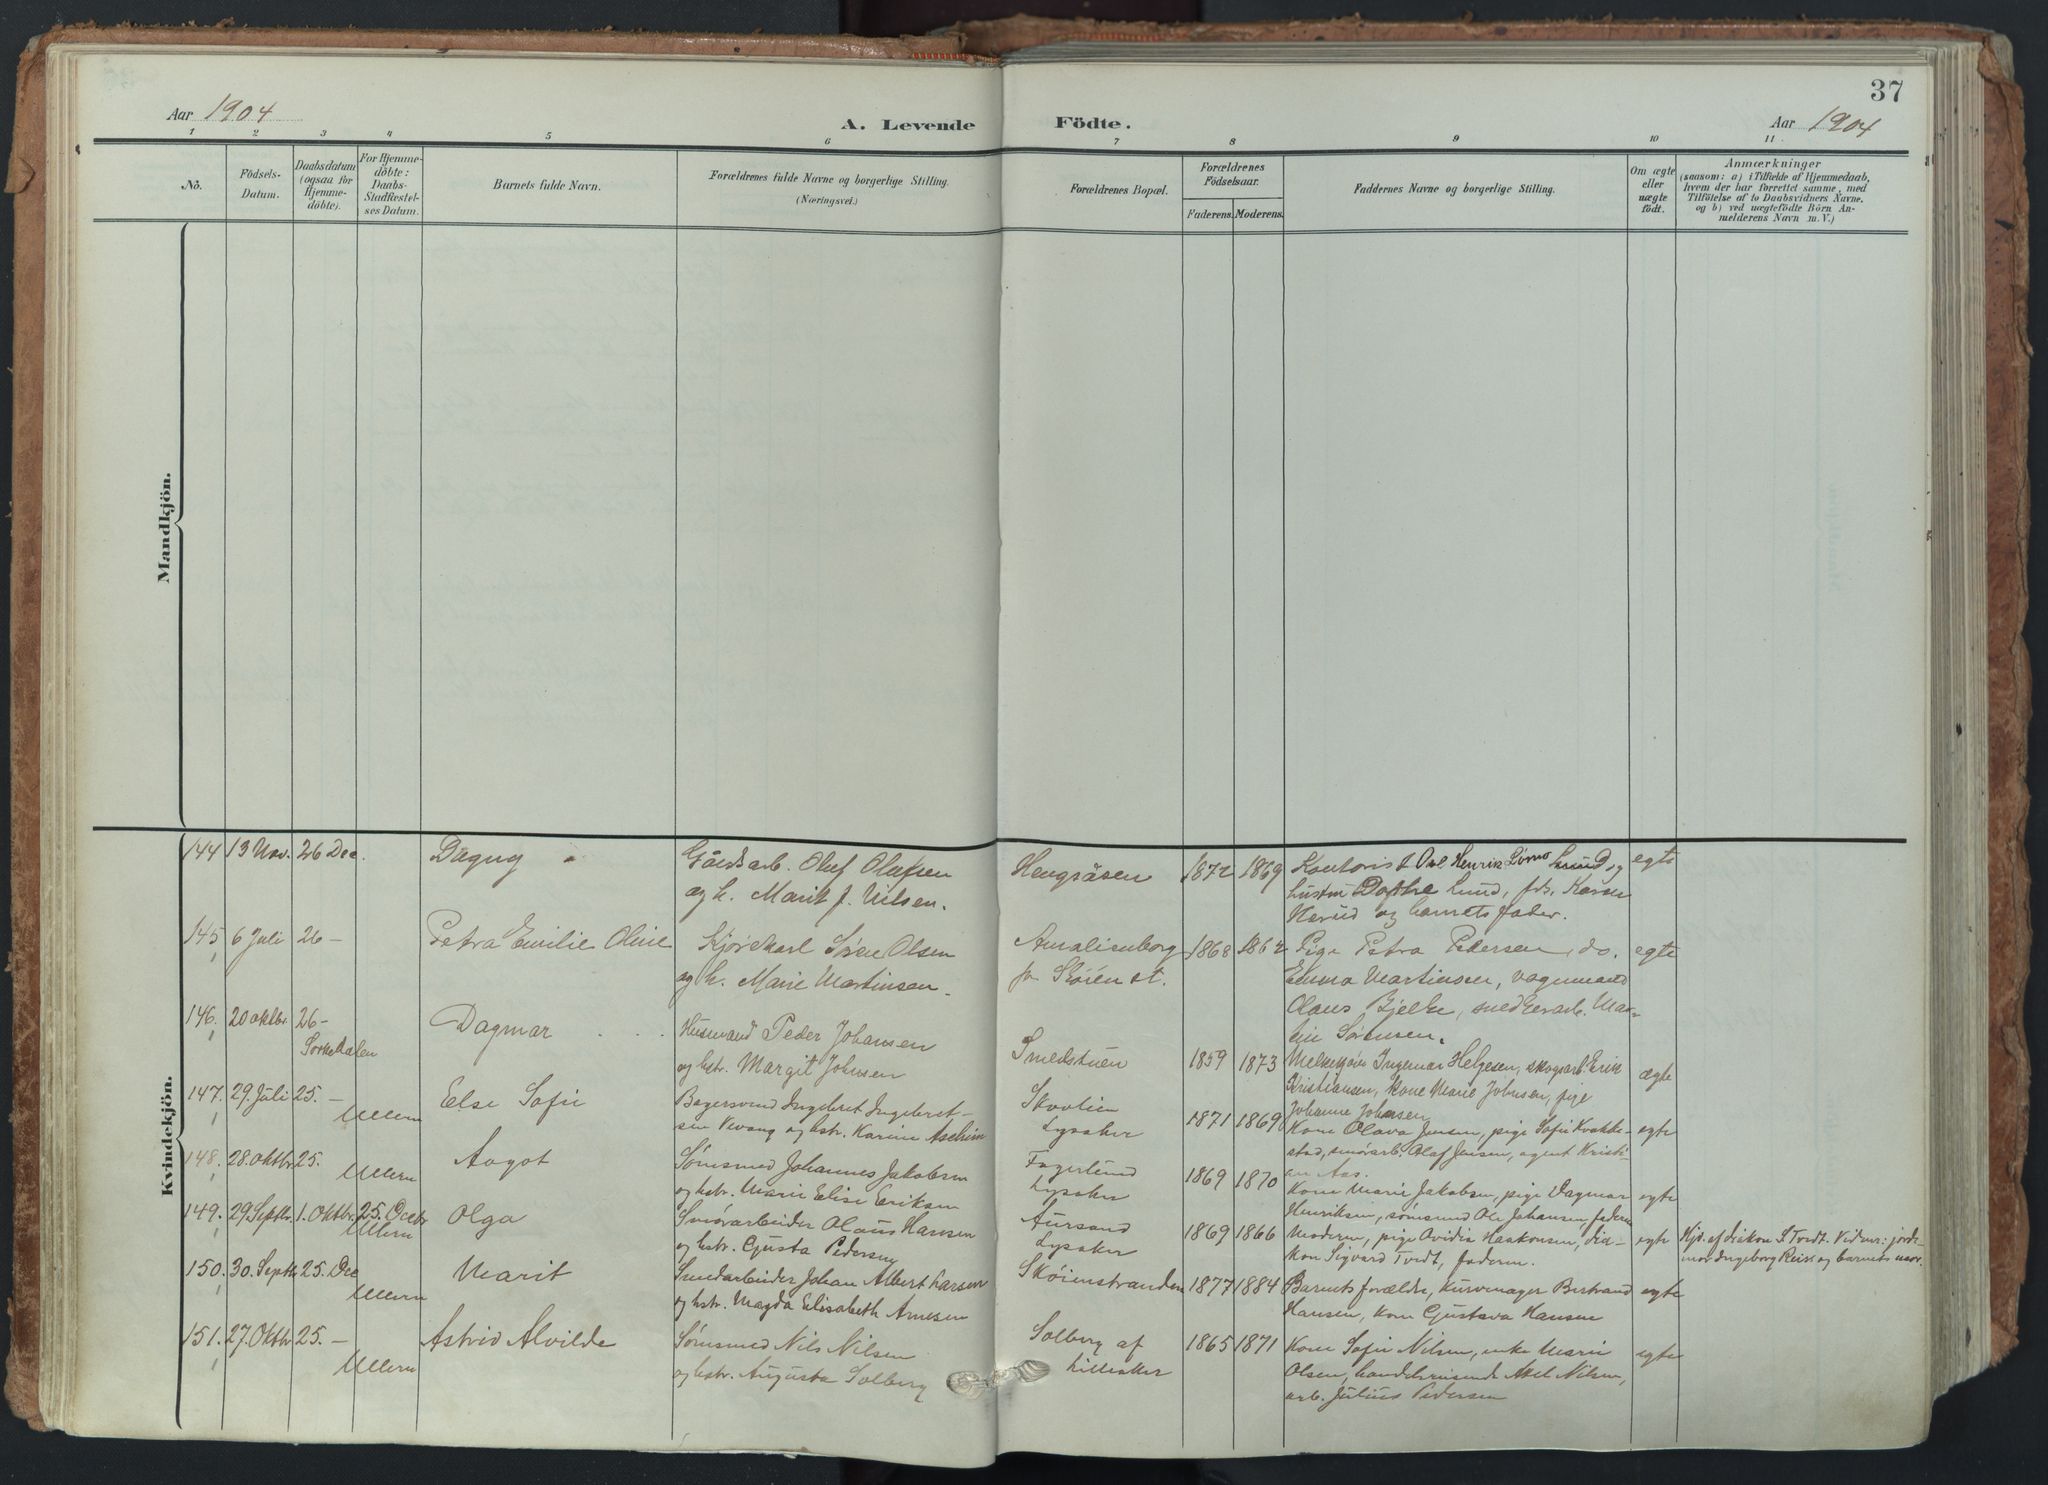 37
Aar 1904
A. Levende Födte.
Aar 1904
1 2 3 4 5 6 7 8 9 10 11
No.
Födsels-
Datum.
Daabsdatum
(ogsaa for
Hjemme-
döbte).
For Hjemme-
döbte:
Daabs-
Stadfæstel-
ses Datum.
Barnets fulde Navn.
Forældrenes fulde Navne og borgerlige Stilling.
(Næringsvei.)
Forældrenes Bopæl.
Forældrenes
Födselsaar.
Faderens. Moderens.
Faddernes Navne og borgerlige Stilling.
Om ægte
eller
uægte
födt.
Anmærkninger
(saasom: a) i Tilfælde af Hjemmedaab,
hvem der har forrettet samme, med
Tilföielse af to Daabsvidners Navne.
og b) ved uægtefödte Börn An-
melderens Navn m. V.)
Mandkjön.
Kvindekjön.
144 13 Nov. 26 Dec. Dagny
Gårdsarb. Oluf Olafsen
og h. Marit J. Nilsen.
Hengsåsen 1872 1869
Kontorist Ove Henrik Lømo Lund og
hustru Dothe Lund, frk. Karen
Herud og barnets fader.
egte
145 6 Juli 26 – Petra Emilie Oline
Kjørekarl Søren Olsen
og h. Marie Martinsen.
Amalienborg
pr Skøien st.
1868 1862
Pige Petra Pedersen, do.
Emma Martinsen, vognmand
Claus Bjelke, snedkerarb. Mar-
tin Sørensen.
egte
146. 20 oktbr 26 –
Sørkedalen
Dagmar
Husmand Peder Johansen
og hstr. Margit Johnsen
Smedstuen 1859 1873
Ingemar Helgesen, skogsarb. Erik
Kristiansen, kone Marie Johnsen, pige
Johanne Johansen
ægte
147. 29 Juli 25. –
Ullern
Else Sofie
Bagersvend Ingebret Ingebret-
sen Vevang og hstr. Karine Aschim
Skovlien
Lysaker
1871 1869
Kone Olava Jensen, pige Sofie Kvakke-
stad, smørarb. Olaf Jensen, agent Kristi-
an Aas.
egte
148. 28. oktbr. 25.
Ullern
Aagot
Sømsmed Johannes Jakobsen
og hstr. Marie Elise Eriksen
Fagerlund
Lysaker
1869 1870
Kone Marie Jakobsen, pige Dagmar
Henriksen, sømsmed Ole Johansen, faderen
egte
149. 29 Septbr. 1. Oktbr. 25. Decbr
Ullern
Olga
Smørarbeider Olaus Hansen
og hstr. Gusta Pedersen
Aursund
Lysaker
1869 1866
Moderen, pige Ovidia Haakonsen, dia-
kon Sigvard Tvedt, faderen.
egte
Hjd. af diakon S. Tvedt. Vidner: jorde-
mor Ingeborg Reis og barnets mor.
150. 30. Septbr 25. Dec
Ullern
Marit
Smedarbeider Johan Albert Larsen
og hstr. Magda Elisabeth Arnesen
Skøienstranden 1877 1884
Barnets forældre, kurvmager Bertrand
Hansen, kone Gustava Hansen
egte
151. 27. Oktbr 25. –
Ullern
Astrid Alvilde
Sømsmed Nils Nilsen
og hstr. Augusta Solberg
Solberg af
Lilleaker
1865 1871
Kone Sofie Nilsen, enke Marie
Olsen, handelsreisende Axel Nilsen,
arb. Julius Pedersen
egte